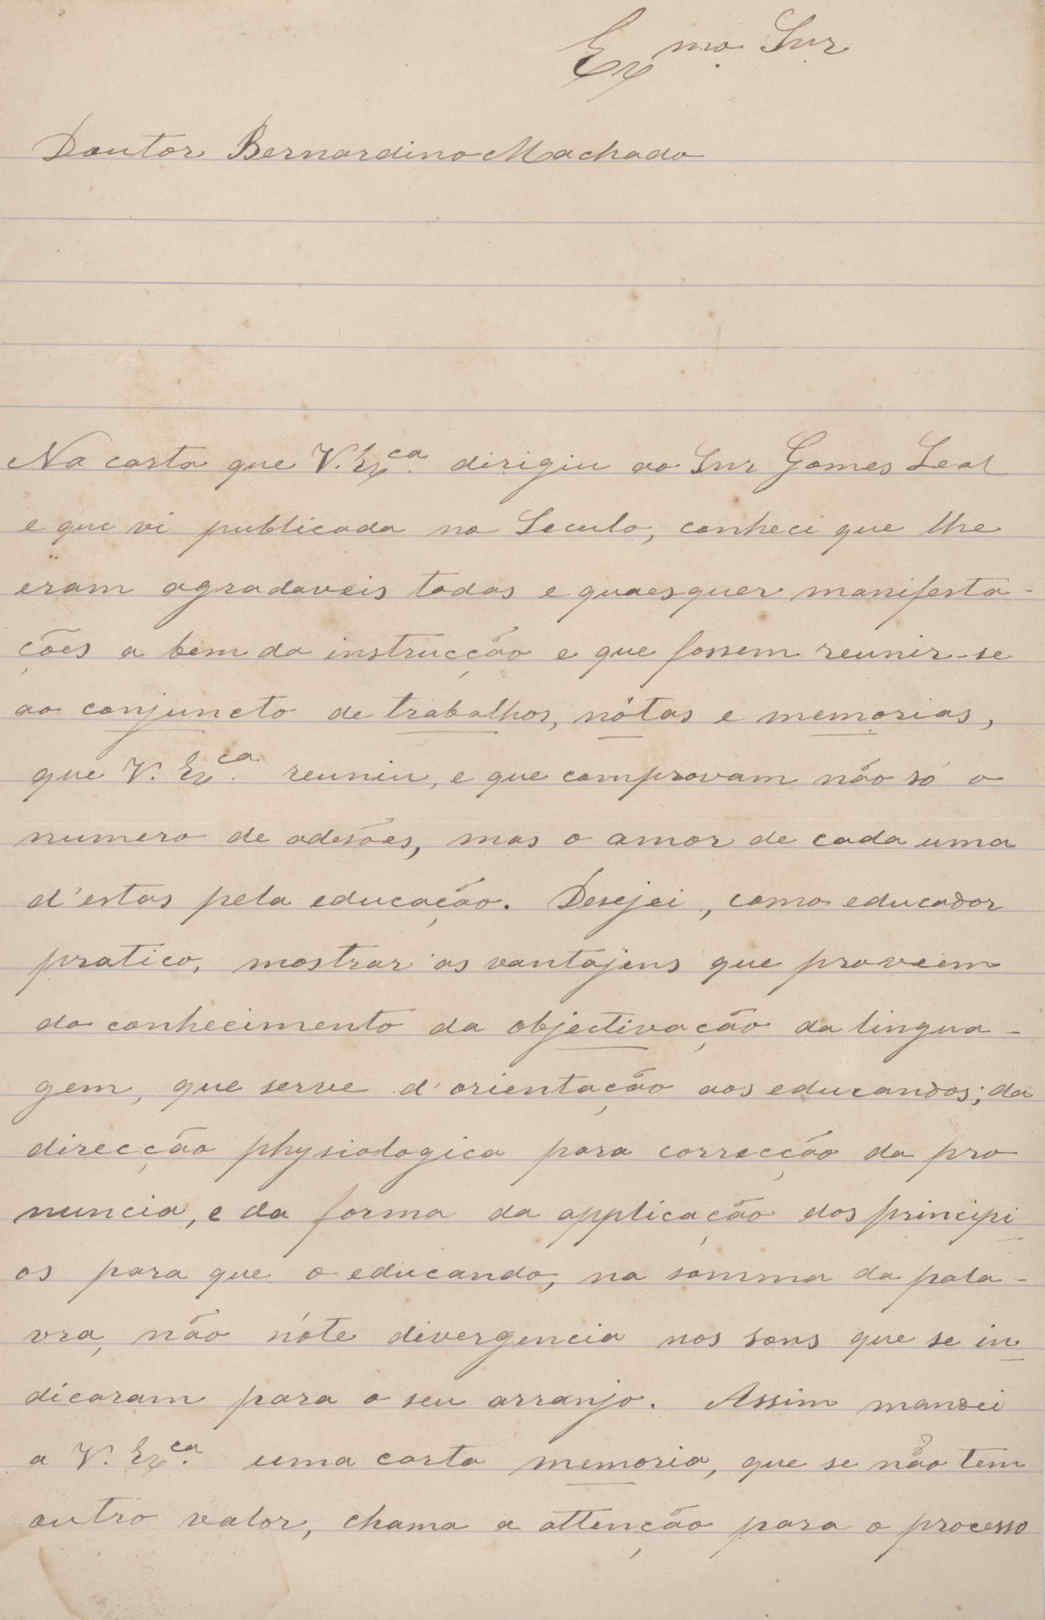 Ex mo. Snr
Doutor Bernardino Machado
Na carta que V. Ex ca. dirigiu ao Snr Gomes Leal
e que vi publicada no Seculo, conheci que lhe
eram agradaveis todas e quaesquer manifesta-
ções a bem da instrucção e que fossem reunir-se
ao conjuncto de trabalhos, nótas e memorias,
que V. Ex ca. reuniu, e que comprovam não só o
numero de adesões, mas o amor de cada uma
d'estas pela educação. Desejei, como educador
pratico, mostrar as vantajens que proveem
do conhecimento da objectivação da lingua-
gem, que serve d'orientação aos educandos; da
direcção physiologica para correcção da pro
nuncia, e da forma da applicação dos principi
os para que o educando, na somma da pala-
vra, não nóte divergencia nos sons que se in
dicaram para o seu arranjo. Assim mandei
a V. Ex ca. uma carta memoria, que se não tem
outro valor, chama a attenção para o processo